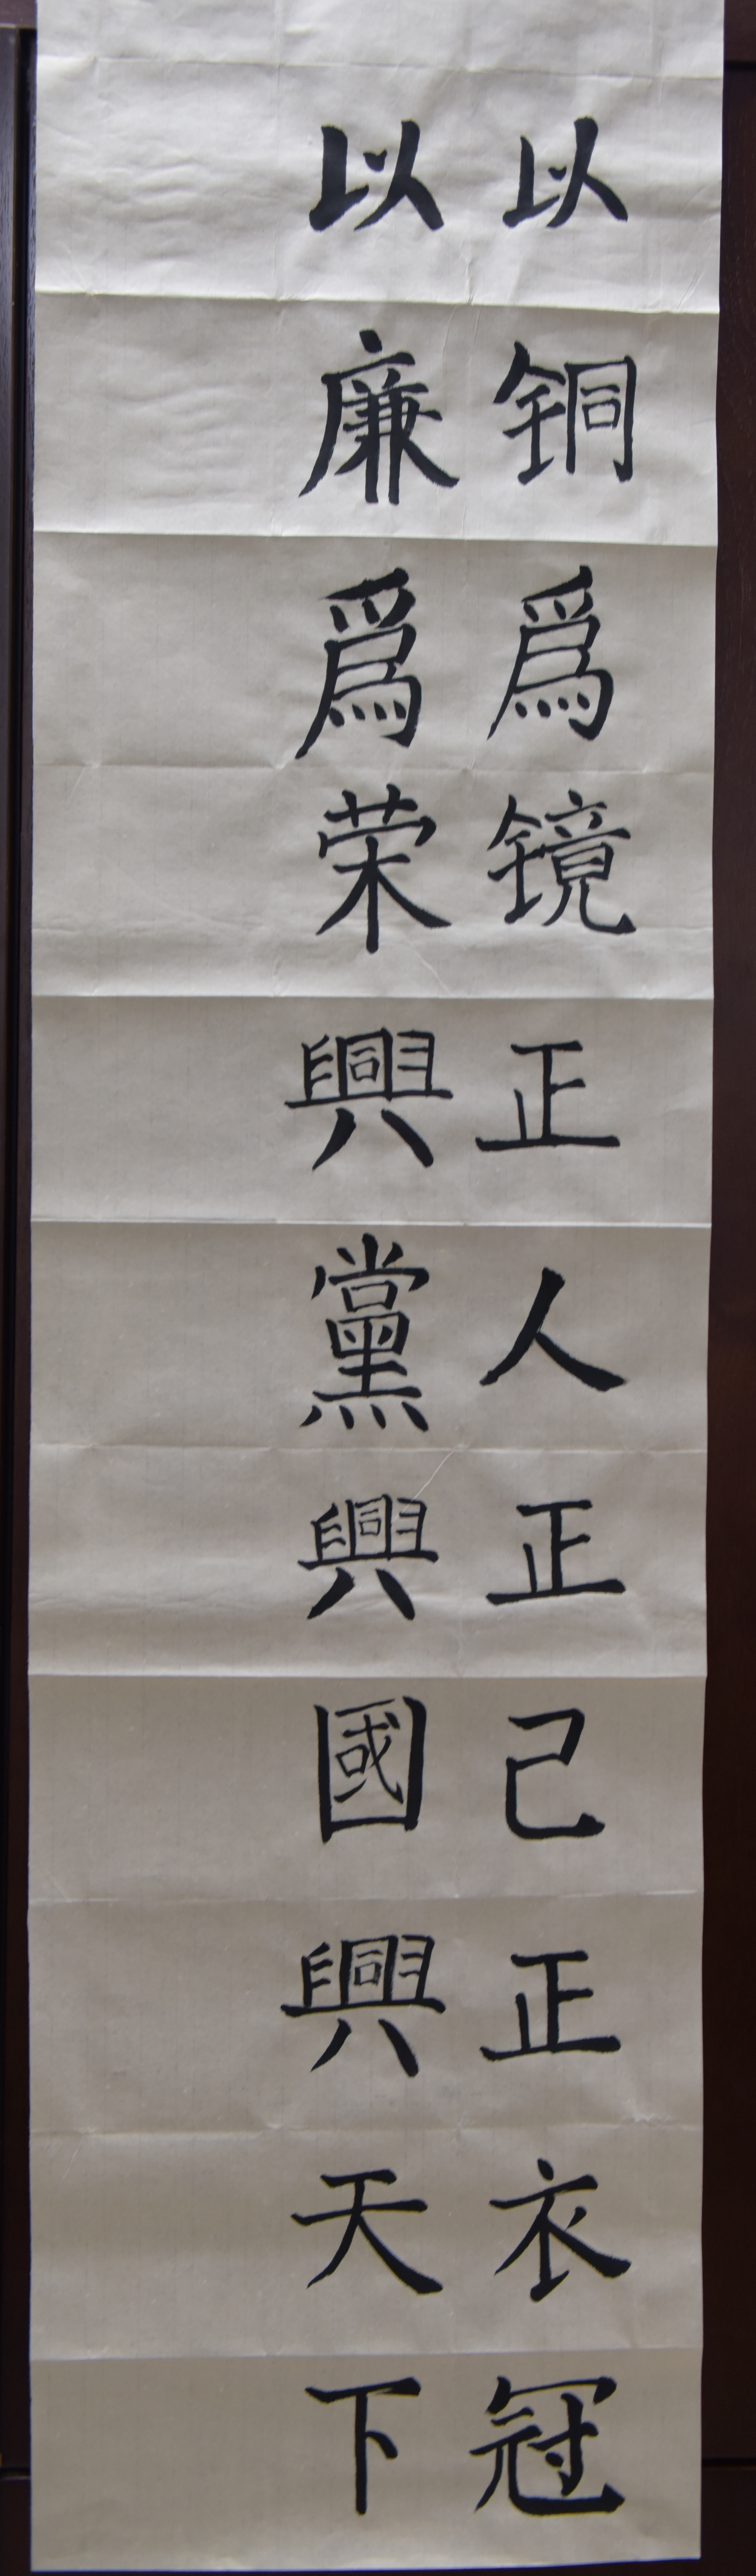 以铜爲镜正人正己正衣冠
以廉爲荣興黨興國興天下